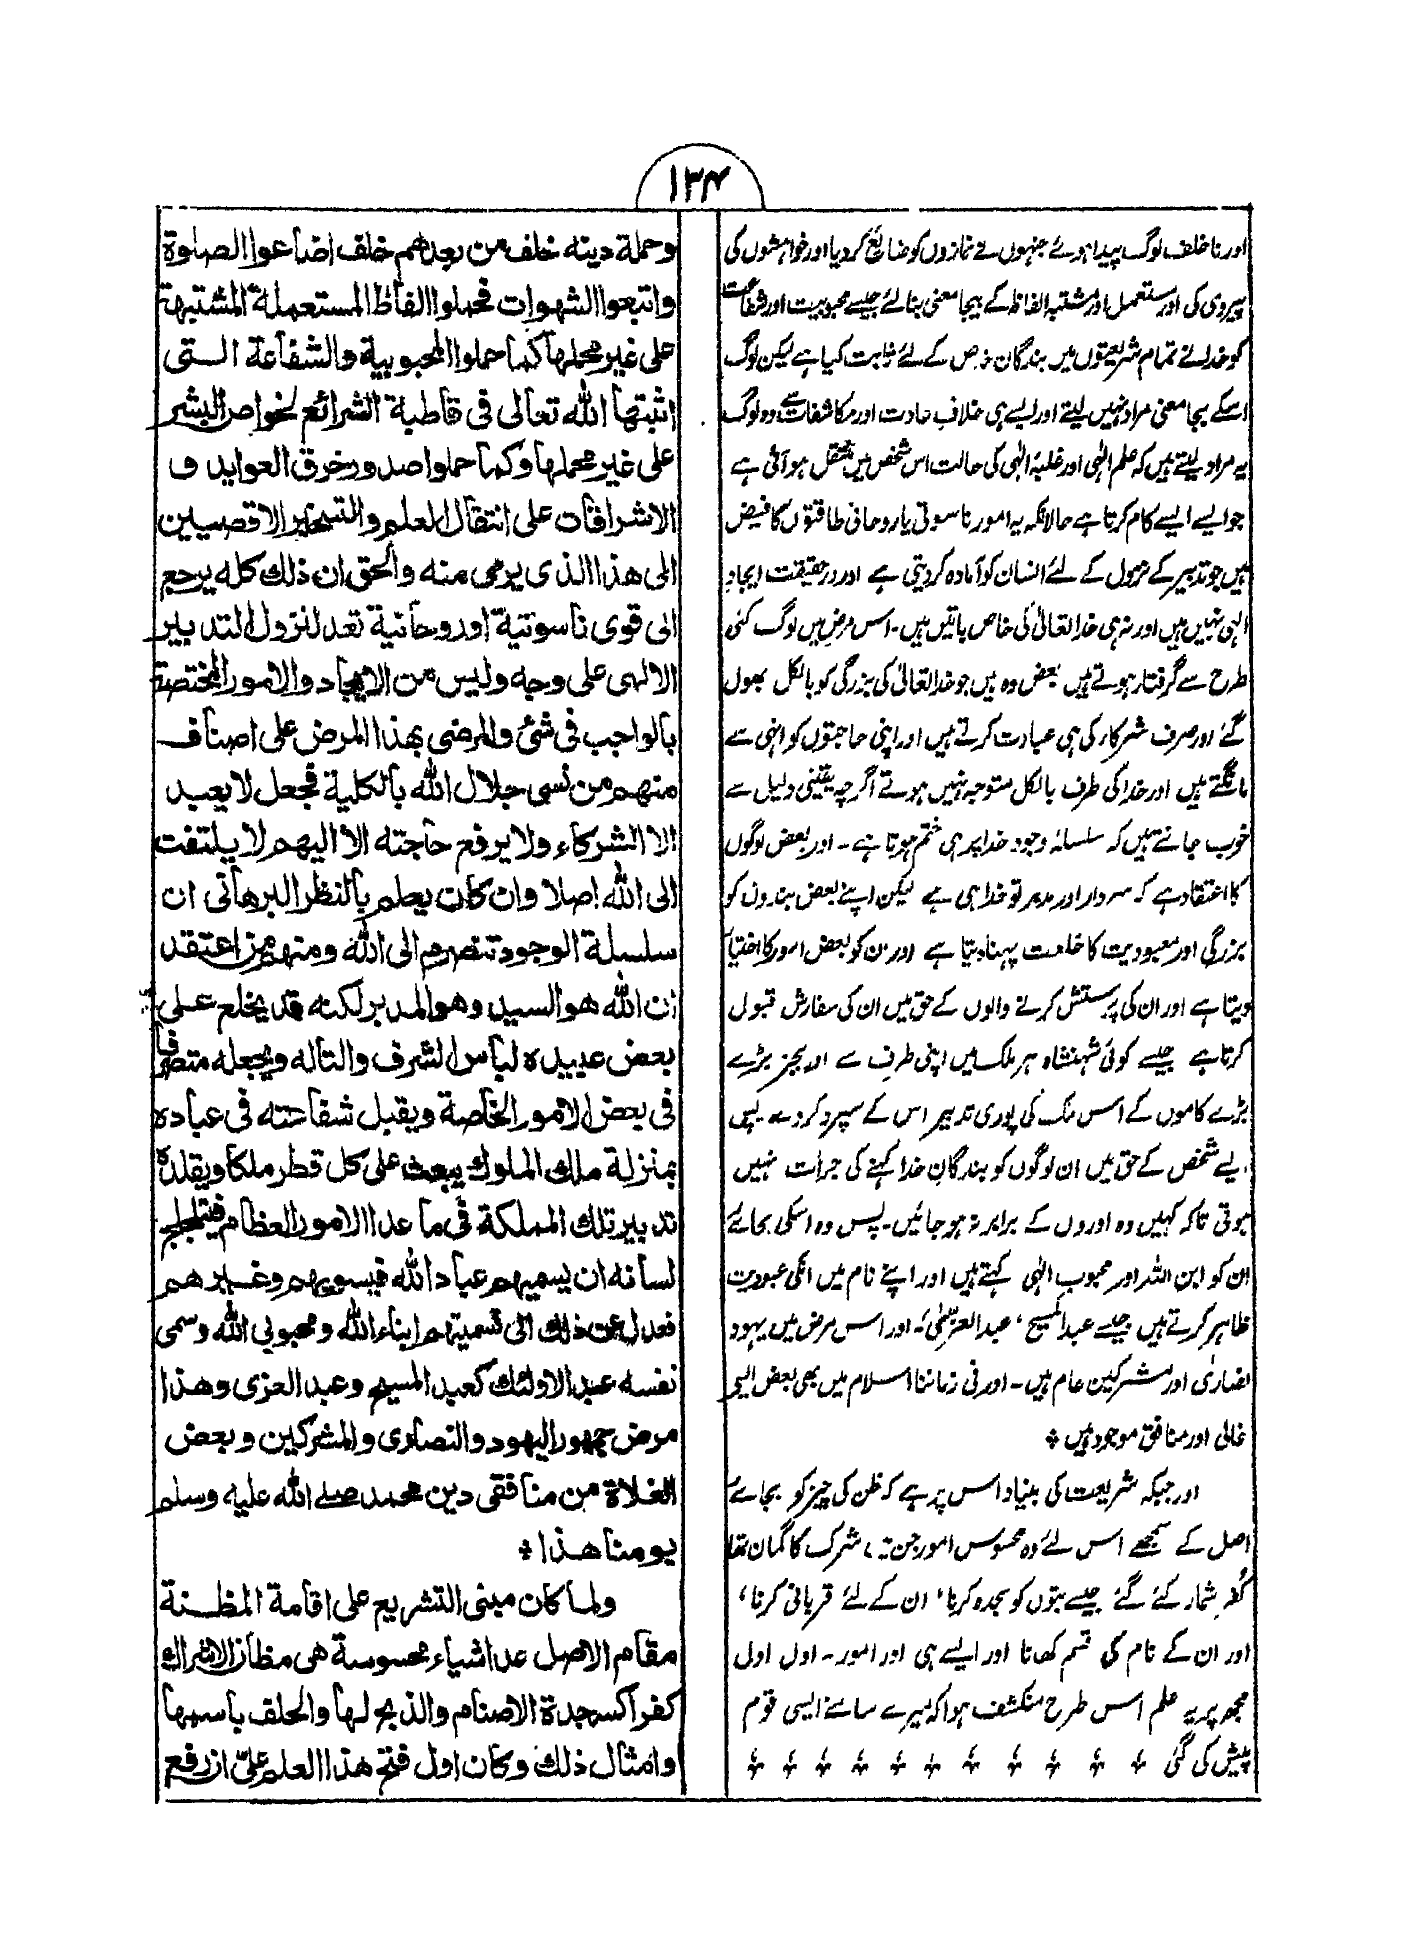 ۱۳۴
اور ناخلف لوگ پیدا ہوئے جنہوں نے نمازوں کو ضائع کر دیا اور خواہشوں کی
پیروی کی اور مستعمل اور مشتبہ الفاظ کے بیجا معنی بنا لئے جیسے محبوبیت اور شفاعت
کو خدا نے تمام شریعتوں میں بندگان خاص کے لئے ثابت کیا ہے لیکن لوگ
اسکے بیجا معنی مراد نہیں لیتے اور ایسے ہی خلاف عادت اور مکاشفات سے وہ لوگ
یہ مراد لیتے ہیں کہ علم الٰہی اور غلبۂ الٰہی کی حالت اس شخص میں منتقل ہو آئی ہے
جو ایسے ایسے کام کرتا ہے حالانکہ یہ امور ناسوتی یا روحانی طاقتوں کا فیض
ہیں جو تدبیر کے نزول کے لئے انسان کو آمادہ کر دیتی ہے اور درحقیقت ایجادِ
الٰہی نہیں ہیں اور نہ ہی خدا تعالیٰ کی خاص باتیں ہیں۔ اس مرض میں لوگ کئی
طرح سے گرفتار ہوتے ہیں بعض وہ ہیں جو خدا تعالیٰ کی بزرگی کو بالکل بھول
گئے اور صرف شرکاء کی ہی عبادت کرتے ہیں اور اپنی حاجتوں کو انہی سے
مانگتے ہیں اور خدا کی طرف بالکل متوجہ نہیں ہوتے اگرچہ یقینی دلیل سے
خوب جانتے ہیں کہ سلسلۂ وجود خدا پر ہی ختم ہوتا ہے ۔ اور بعض لوگوں
کا اعتقاد ہے کہ سردار اور مدبر تو خدا ہی ہے لیکن اپنے بعض بندوں کو
بزرگی اور معبودیت کا خلعت پہنا دیتا ہے اور ان کو بعض امور کا اختیار
دیتا ہے اور ان کی پرستش کرنے والوں کے حق میں ان کی سفارش قبول
کرتا ہے جیسے کوئی شہنشاہ ہر ملک میں اپنی طرف سے اور بجز بڑے
بڑے کاموں کے اس ملک کی پوری تدبیر اس کے سپرد کردے پس
ایسے شخص کے حق میں ان لوگوں کو بندگانِ خدا کہنے کی جرأت نہیں
ہوتی تاکہ کہیں وہ اوروں کے برابر نہ ہو جائیں۔ پس وہ اسکی بجائے
ان کو ابن اللہ اور محبوب الٰہی کہتے ہیں اور اپنے نام میں انکی عبودیت
ظاہر کرتے ہیں جیسے عبدالمسیح، عبدالعزیٰ،۔ اور اس مرض میں یہود
نصاریٰ اور مشرکین عام ہیں۔ اور فی زماننا اسلام میں بھی بعض ایسے
غالی اور منافق موجود ہیں *
اور جبکہ شریعت کی بنیاد اس پر ہے کہ ظن کی چیز کو بجائے
اصل کے سمجھے اس لئے وہ محسوس امور جن سے شرک کا گمان تھا
کفر شمار کئے گئے جیسے بتوں کو سجدہ کرنا، ان کے لئے قربانی کرنا،
اور ان کے نام کی قسم کھانا اور ایسے ہی اور امور۔ اول اول
مجھ پر یہ علم اس طرح منکشف ہوا کہ میرے سامنے ایسی قوم
پیش کی گئی * * * * * * * * * * *
وحملة دينه خلف من بعدهم خلف اضاعوا الصلوة
واتبعوا الشهوات فحملوا الفاظ المستعملة المشتبهة
على غير محملها كما حملوا المحبوبية والشفاعة التى
اثبتها الله تعالى فى قاطبة الشرائع لخواص البشر
على غير محملها وكما حملوا صدور خرق العوايد و
الاشراقات على انتقال العلم والتسخير الاقصيين
الى هذا الذى يرى منه والحق ان ذلك كله يرجع
الى قوى ناسوتية او روحانية تعد لنزول التدبير
الالهى على وجه وليس من الايجاد والامور المختصة
بالواجب فى شئ والمرضى بهذا المرض على اصناف
منهم من نسى جلال الله بالكلية فجعل لا يعبد
الا الشركاء ولا يرفع حاجته الا اليهم لا يلتفت
الى الله اصلا وان كان يعلم بالنظر البرهانى ان
سلسلة الوجود تنصرم الى الله ومنهم من اعتقد
ان الله هو السيد وهو المدبر لكنه قد يخلع على
بعض عبيده لباس الشرف والتاله ويجعله متصرفا
فى بعض الامور الخاصة ويقبل شفاعته فى عباده
بمنزلة ملك الملوك يبعث على كل قطر ملكا ويقلده
تدبير تلك المملكة فى ما عدا الامور العظام فيتلجلج
لسانه ان يسميهم عباد الله فيسويهم وغيرهم
فعدل عن ذلك الى تسميتهم ابناء الله ومحبوبى الله وسمى
نفسه عبد الاولئك كعبد المسيح وعبد العزى وهذا
مرض جمهور اليهود والنصارى والمشركين وبعض
الغلاة من منافقى دين محمد صلے الله عليه وسلم
يومنا هذا *
ولما كان مبنى التشريع على اقامة المظنة
مقام الاصل عد اشياء محسوسة هى مظان الاشراك
كفرا كسجدة الاصنام والذبح لها والحلف باسمها
وامثال ذلك وكان اول فتح هذا العلم علىّ ان رفع